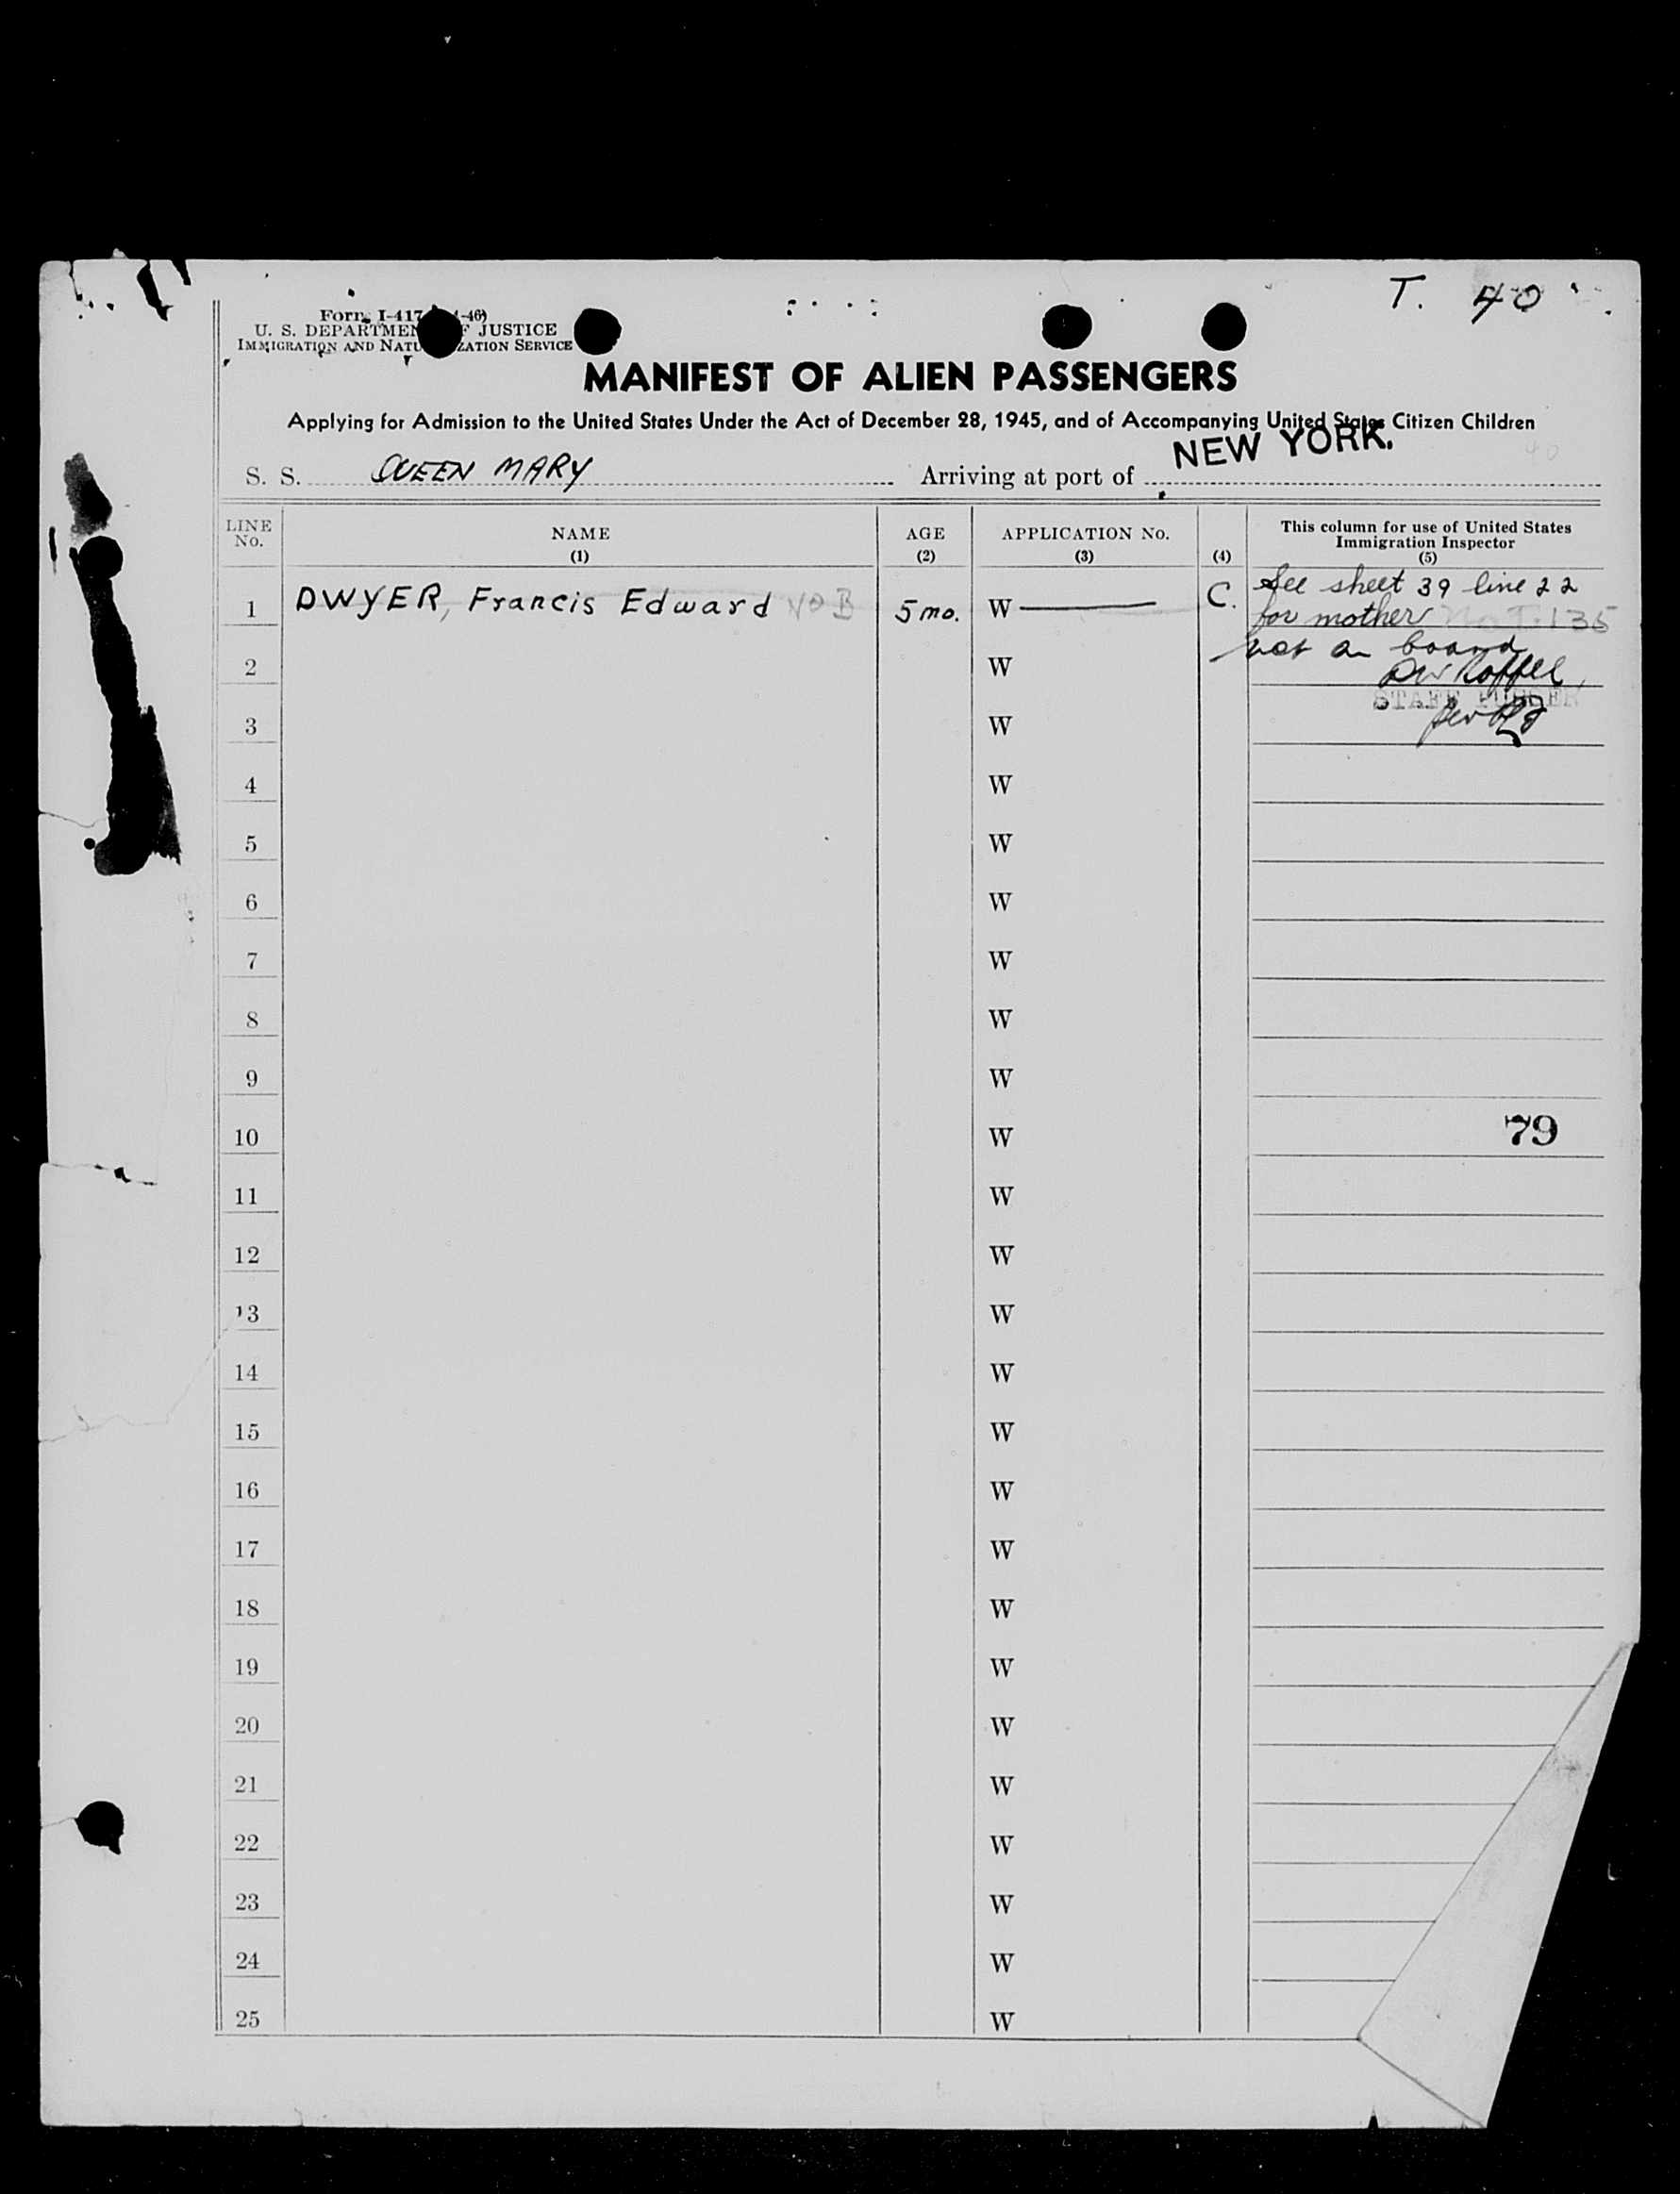 T. 40
Form I-417 -46)
U. S. DEPARTMEN F JUSTICE
IMMIGRATION AND NATU ZATION SERVICE
MANIFEST OF ALIEN PASSENGERS
Applying for Admission to the United States Under the Act of December 28, 1945, and of Accompanying United States Citizen Children
S. S. QUEEN MARY Arriving at port of NEW YORK.
40
LINE No. NAME (1) AGE (2) APPLICATION No. (3) (4) This column for use of United States Immigration Inspector (5)
1 DWYER, Francis Edward NOB 5 mo. W C. See sheet 39 line 22
for mother No T. 135
not on board
2 W
STAFF PURSER
3 W
4 W
5 W
6 W
7 W
8 W
9 W
10 W 79
11 W
12 W
13 W
14 W
15 W
16 W
17 W
18 W
19 W
20 W
21 W
22 W
23 W
24 W
25 W